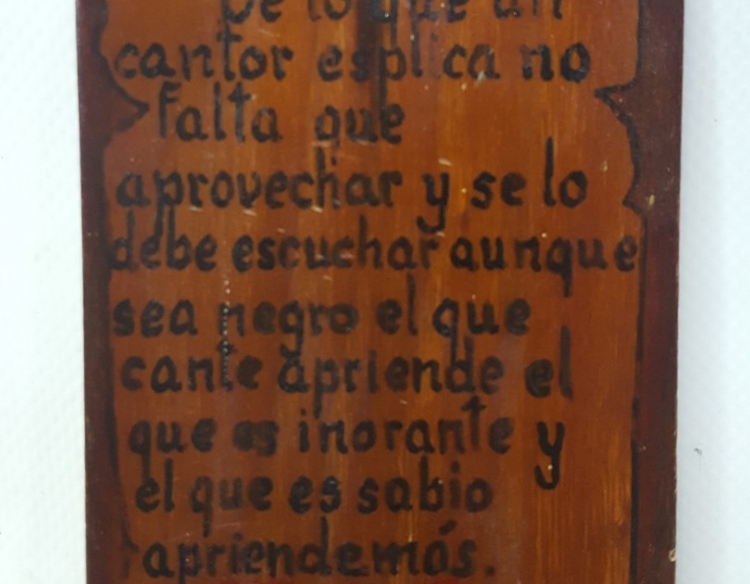 De lo que un
cantor esplica no
falta que
aprovechar y se lo
debe escuchar aunque
sea negro el que
cante apriende el
que es inorante y
el que es sabio
apriende más.